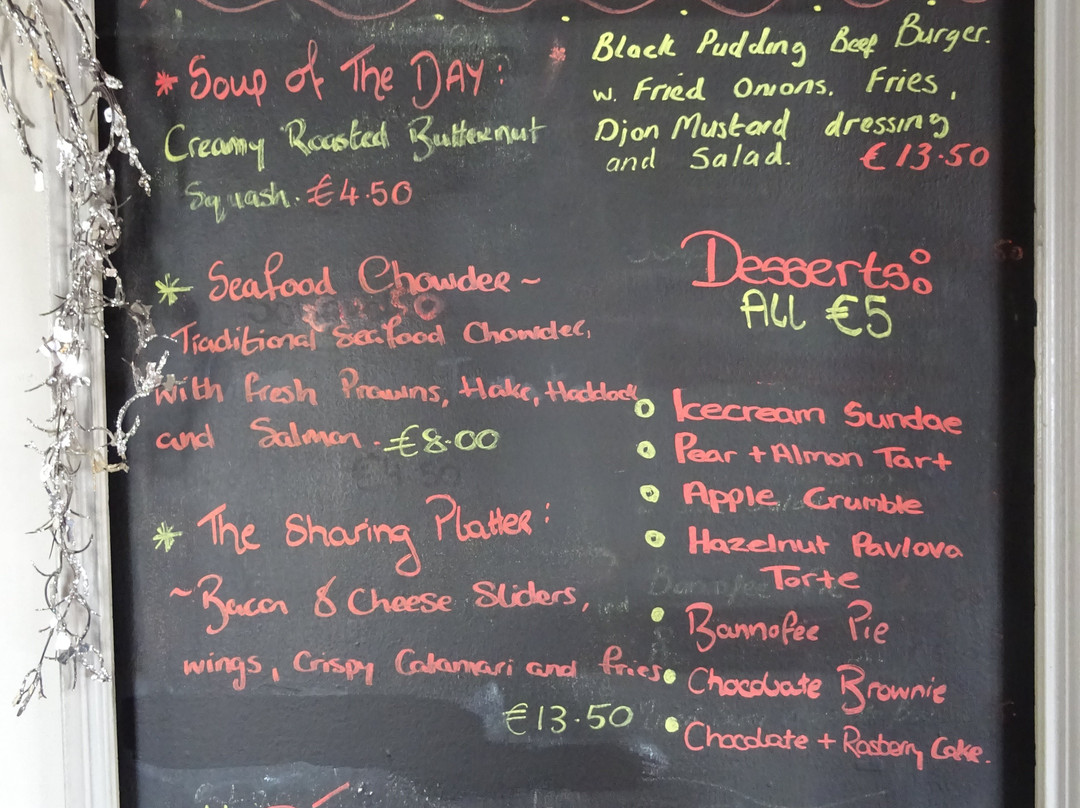 * Soup of The DAY:
Creamy Roasted Butternut
Squash. €4.50
* Seafood Chowder ~
Traditional Seafood Chowder,
with fresh Prawns, Hake, Haddock
and Salmon. €8.00
* The Sharing Platter:
~ Bacon & Cheese Sliders,
wings, Crispy Calamari and fries
€13.50
* Black Pudding Beef Burger.
w. Fried Onions, Fries,
Djon Mustard dressing
and Salad. €13.50
Desserts:
All €5
Icecream Sundae
Pear + Almon Tart
Apple Crumble
Hazelnut Pavlova
Torte
Bannofee Pie
Chocolate Brownie
Chocolate + Rasberry Cake.